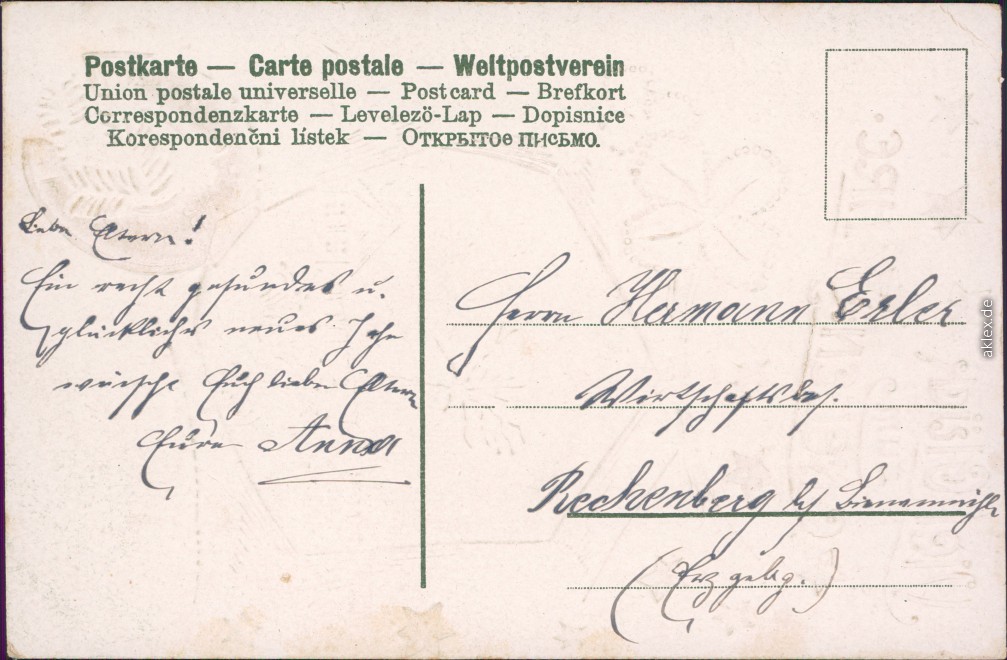 Postkarte — Carte postale — Weltpostverein
Union postale universelle — Postcard — Brefkort
Correspondenzkarte — Levelezö-Lap — Dopisnice
Korespondenčni lístek — Открытое письмо.
Liebe Eltern!
Ein recht gesundes u.
glückliches neues Jahr
wünscht Euch lieben Eltern
Eure Anna
Herrn Hermann Erler
Wirtschaftsbes.
Rechenberg b/ Bienenmühle
(Erzgebg.)
aklex.de